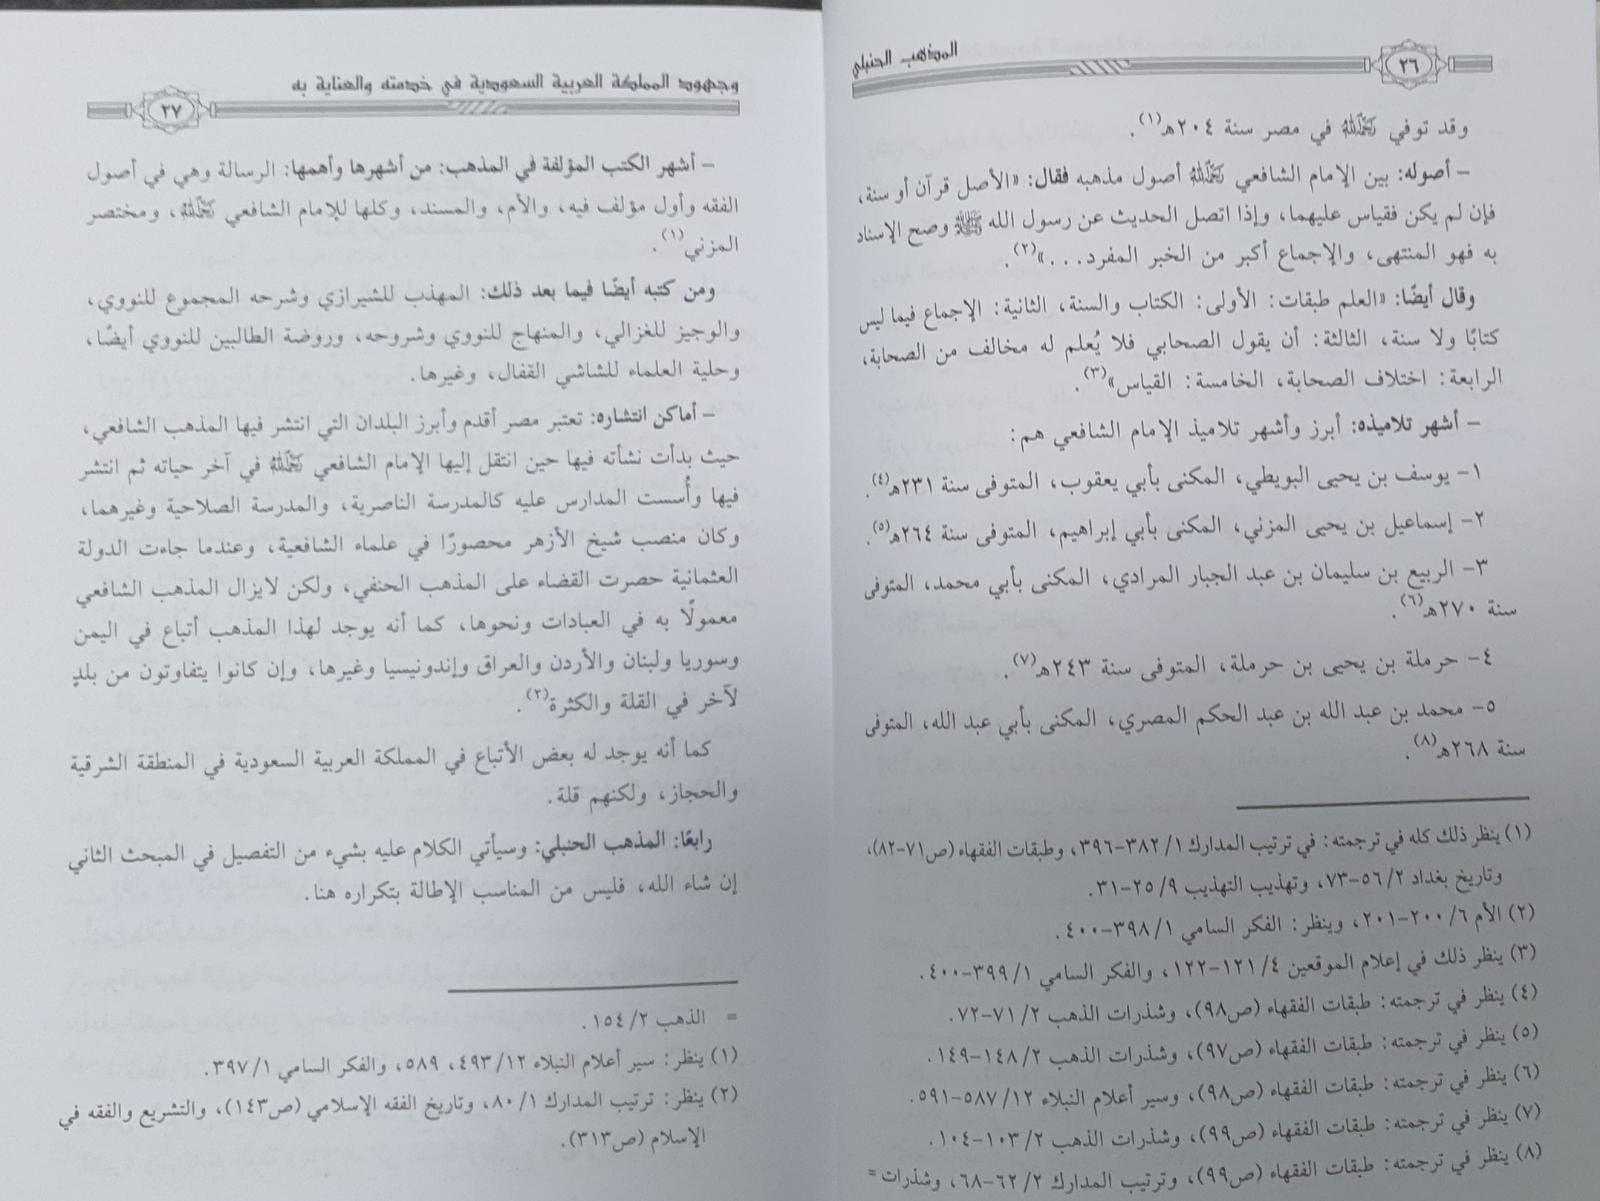 ٢٦
المذهب الحنبلي
وقد توفي رحمه الله في مصر سنة ٢٠٤هـ(١).
– أصوله: بين الإمام الشافعي رحمه الله أصول مذهبه فقال: «الأصل قرآن أو سنة،
فإن لم يكن فقياس عليهما، وإذا اتصل الحديث عن رسول الله ﷺ وصح الإسناد
به فهو المنتهى، والإجماع أكبر من الخبر المفرد...»(٢).
وقال أيضًا: «العلم طبقات: الأولى: الكتاب والسنة، الثانية: الإجماع فيما ليس
كتابًا ولا سنة، الثالثة: أن يقول الصحابي فلا يُعلم له مخالف من الصحابة،
الرابعة: اختلاف الصحابة، الخامسة: القياس»(٣).
– أشهر تلاميذه: أبرز وأشهر تلاميذ الإمام الشافعي هم:
١– يوسف بن يحيى البويطي، المكنى بأبي يعقوب، المتوفى سنة ٢٣١هـ(٤).
٢– إسماعيل بن يحيى المزني، المكنى بأبي إبراهيم، المتوفى سنة ٢٦٤هـ(٥).
٣– الربيع بن سليمان بن عبد الجبار المرادي، المكنى بأبي محمد، المتوفى
سنة ٢٧٠هـ(٦).
٤– حرملة بن يحيى بن حرملة، المتوفى سنة ٢٤٣هـ(٧).
٥– محمد بن عبد الله بن عبد الحكم المصري، المكنى بأبي عبد الله، المتوفى
سنة ٢٦٨هـ(٨).
(١) ينظر ذلك كله في ترجمته: في ترتيب المدارك ١/ ٣٨٢–٣٩٦، وطبقات الفقهاء (ص٧١–٨٢)،
وتاريخ بغداد ٢/ ٥٦–٧٣، وتهذيب التهذيب ٩/ ٢٥–٣١.
(٢) الأم ٦/ ٢٠٠–٢٠١، وينظر: الفكر السامي ١/ ٣٩٨–٤٠٠.
(٣) ينظر ذلك في إعلام الموقعين ٤/ ١٢١–١٢٢، والفكر السامي ١/ ٣٩٩–٤٠٠.
(٤) ينظر في ترجمته: طبقات الفقهاء (ص٩٨)، وشذرات الذهب ٢/ ٧١–٧٢.
(٥) ينظر في ترجمته: طبقات الفقهاء (ص٩٧)، وشذرات الذهب ٢/ ١٤٨–١٤٩.
(٦) ينظر في ترجمته: طبقات الفقهاء (ص٩٨)، وسير أعلام النبلاء ١٢/ ٥٨٧–٥٩١.
(٧) ينظر في ترجمته: طبقات الفقهاء (ص٩٩)، وشذرات الذهب ٢/ ١٠٣–١٠٤.
(٨) ينظر في ترجمته: طبقات الفقهاء (ص٩٩)، وترتيب المدارك ٢/ ٦٢–٦٨، وشذرات =
وجهود المملكة العربية السعودية في خدمته والعناية به
٢٧
– أشهر الكتب المؤلفة في المذهب: من أشهرها وأهمها: الرسالة وهي في أصول
الفقه وأول مؤلف فيه، والأم، والمسند، وكلها للإمام الشافعي رحمه الله، ومختصر
المزني(١).
ومن كتبه أيضًا فيما بعد ذلك: المهذب للشيرازي وشرحه المجموع للنووي،
والوجيز للغزالي، والمنهاج للنووي وشروحه، وروضة الطالبين للنووي أيضًا،
وحلية العلماء للشاشي القفال، وغيرها.
– أماكن انتشاره: تعتبر مصر أقدم وأبرز البلدان التي انتشر فيها المذهب الشافعي،
حيث بدأت نشأته فيها حين انتقل إليها الإمام الشافعي رحمه الله في آخر حياته ثم انتشر
فيها وأُسست المدارس عليه كالمدرسة الناصرية، والمدرسة الصلاحية وغيرهما،
وكان منصب شيخ الأزهر محصورًا في علماء الشافعية، وعندما جاءت الدولة
العثمانية حصرت القضاء على المذهب الحنفي، ولكن لايزال المذهب الشافعي
معمولًا به في العبادات ونحوها، كما أنه يوجد لهذا المذهب أتباع في اليمن
وسوريا ولبنان والأردن والعراق وإندونيسيا وغيرها، وإن كانوا يتفاوتون من بلدٍ
لآخر في القلة والكثرة(٢).
كما أنه يوجد له بعض الأتباع في المملكة العربية السعودية في المنطقة الشرقية
والحجاز، ولكنهم قلة.
رابعًا: المذهب الحنبلي: وسيأتي الكلام عليه بشيء من التفصيل في المبحث الثاني
إن شاء الله، فليس من المناسب الإطالة بتكراره هنا.
= الذهب ٢/ ١٥٤.
(١) ينظر: سير أعلام النبلاء ١٢/ ٤٩٣، ٥٨٩، والفكر السامي ١/ ٣٩٧.
(٢) ينظر: ترتيب المدارك ١/ ٨٠، وتاريخ الفقه الإسلامي (ص١٤٣)، والتشريع والفقه في
الإسلام (ص٣١٣).